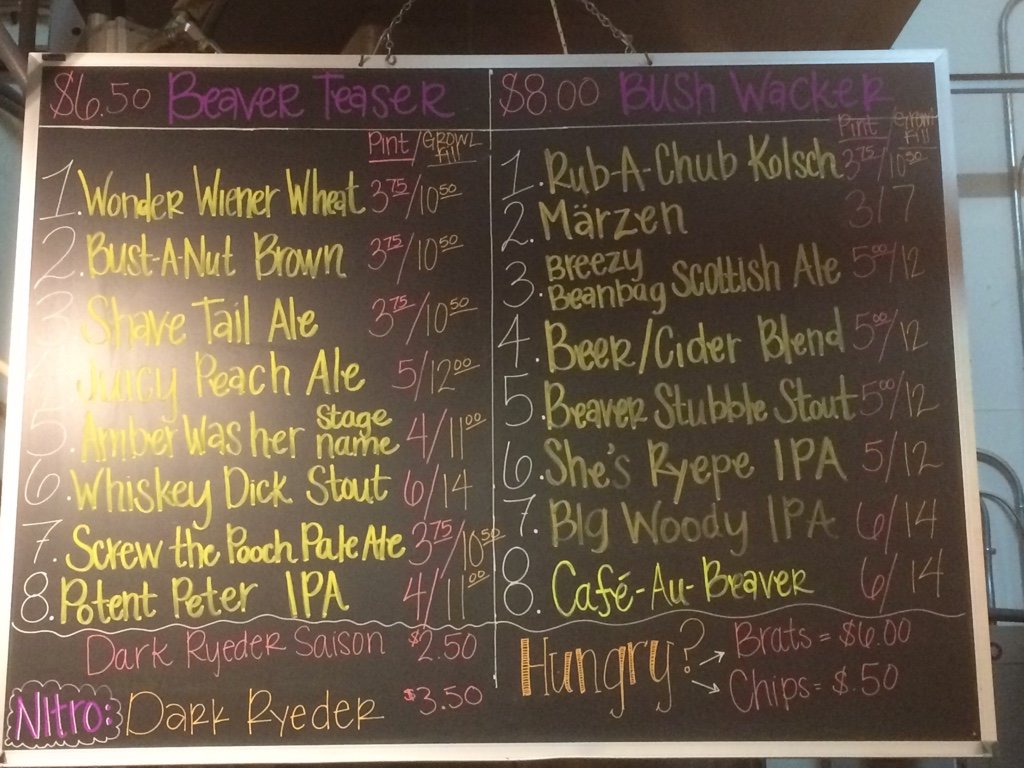 $6.50 Beaver Teaser
Pint / Growl Fill
1. Wonder Wiener Wheat 3.75/10.50
2. Bust-A-Nut Brown 3.75/10.50
3. Shave Tail Ale 3.75/10.50
4. Juicy Peach Ale 5/12.00
5. Amber Was her stage name 4/11.00
6. Whiskey Dick Stout 6/14
7. Screw the Pooch Pale Ale 3.75/10.50
8. Potent Peter IPA 4/11.00
Dark Ryeder Saison $2.50
Nitro: Dark Ryeder $3.50
$8.00 Bush Wacker
Pint / Growl Fill
1. Rub-A-Chub Kolsch 3.75/10.50
2. Märzen 3/7
3. Breezy Beanbag Scottish Ale 5.00/12
4. Beer/Cider Blend 5.00/12
5. Beaver Stubble Stout 5.00/12
6. She's Ryepe IPA 5/12
7. Big Woody IPA 6/14
8. Café-Au-Beaver 6/14
Hungry? → Brats = $6.00
→ Chips = $.50